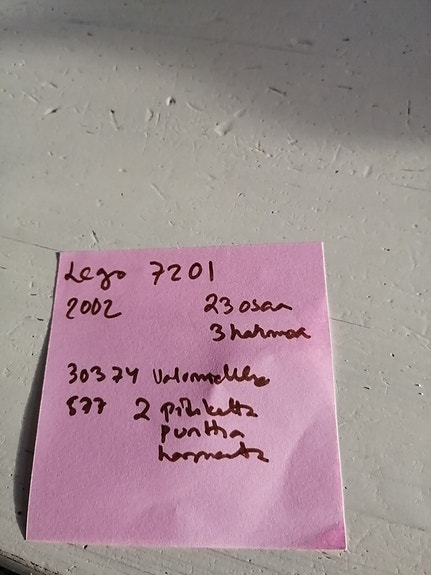 Lego 7201
2002 23 osaa
3 hahmoa
30374 Valomiekka
577 2 pitkätta
puntha
harmaata